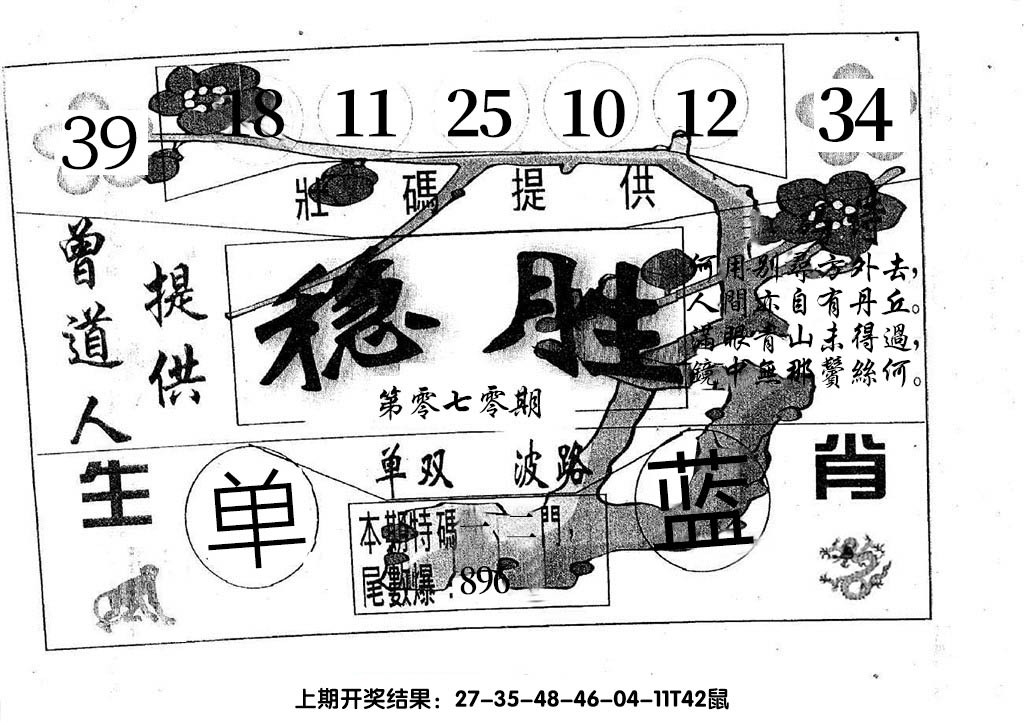 39 18 11 25 10 12 34
壯碼提供
曾道人
提供
稳胜
第零七零期
何用别尋方外去,
人間亦自有丹丘。
滿眼青山未得過,
鏡中無那鬢絲何。
单双 波路
生肖
单
蓝
本期特碼一、二門,
尾數爆:896
上期开奖结果:27-35-48-46-04-11T42鼠